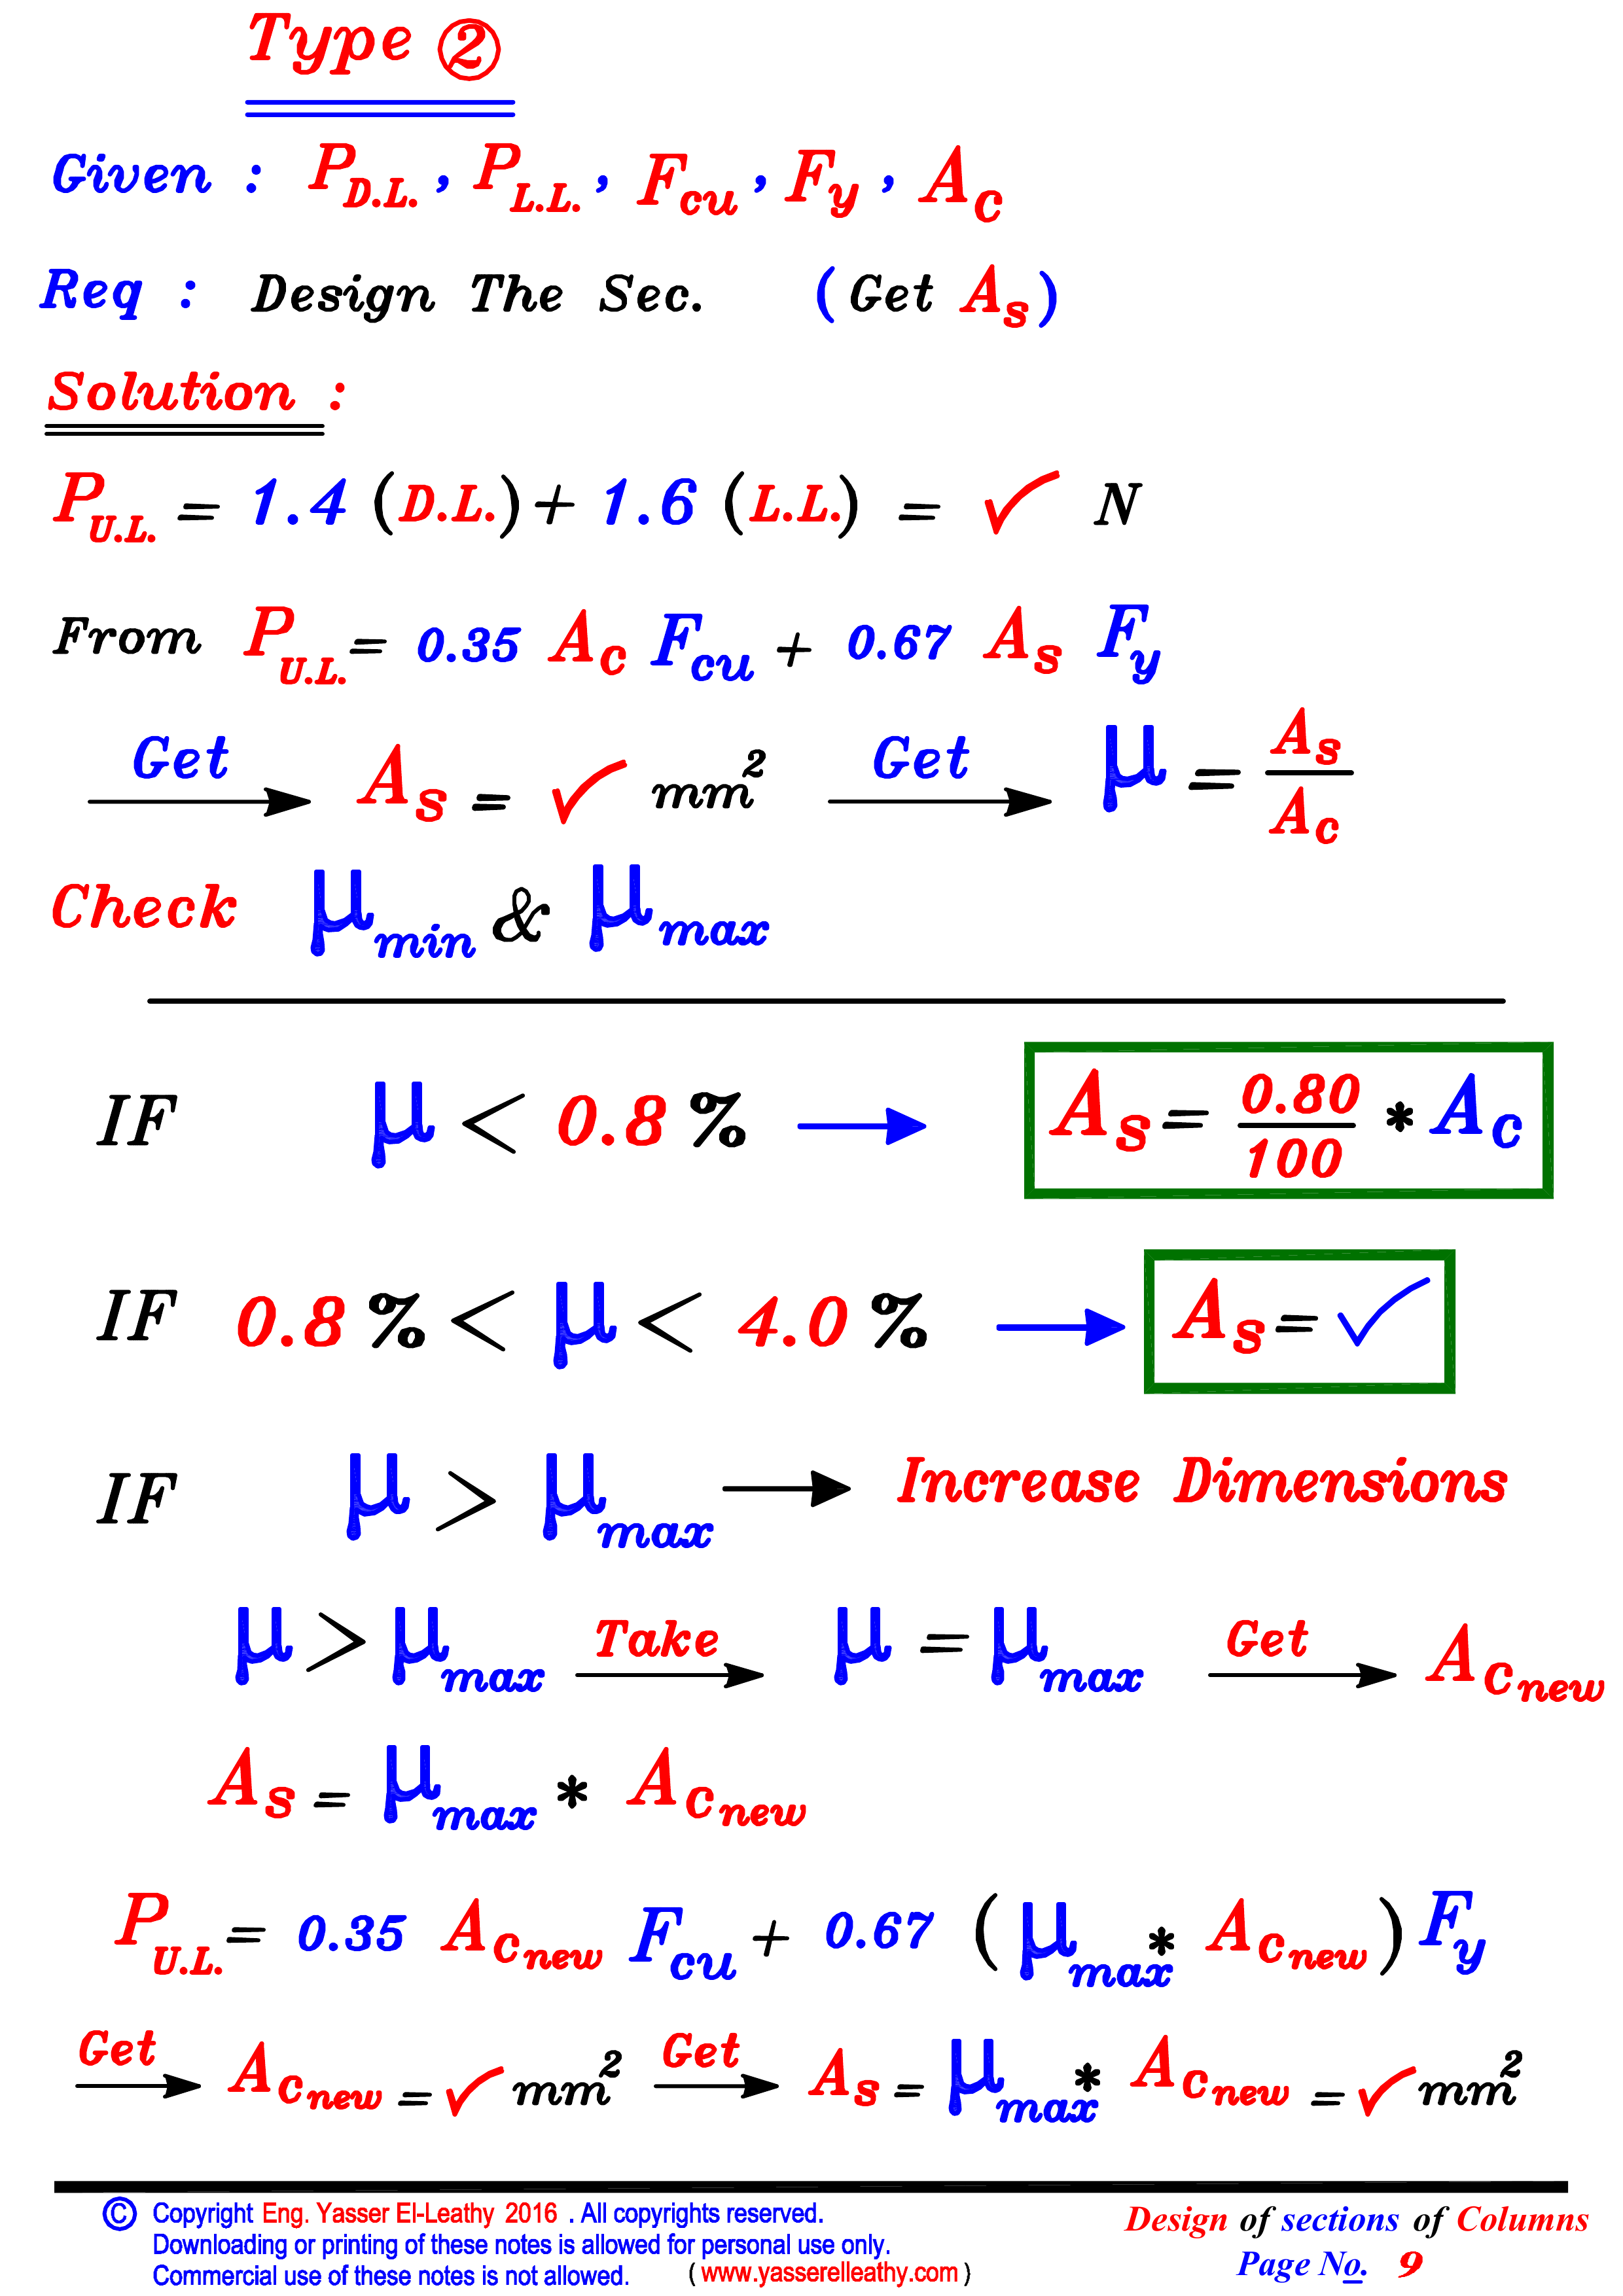 Type ②
Given : P D.L. , P L.L. , Fcu , Fy , Ac
Req : Design The Sec. ( Get As )
Solution :
P U.L. = 1.4 (D.L.) + 1.6 (L.L.) = ✓ N
From P U.L. = 0.35 Ac Fcu + 0.67 As Fy
Get → As = ✓ mm² Get → μ = As / Ac
Check μmin & μmax
IF μ < 0.8 % → As = 0.80/100 * Ac
IF 0.8 % < μ < 4.0 % → As = ✓
IF μ > μmax → Increase Dimensions
μ > μmax Take → μ = μmax Get → Ac new
As = μmax * Ac new
P U.L. = 0.35 Ac new Fcu + 0.67 ( μmax * Ac new ) Fy
Get → Ac new = ✓ mm² Get → As = μmax * Ac new = ✓ mm²
© Copyright Eng. Yasser El-Leathy 2016 . All copyrights reserved.
Downloading or printing of these notes is allowed for personal use only.
Commercial use of these notes is not allowed. ( www.yasserelleathy.com )
Design of sections of Columns
Page No. 9